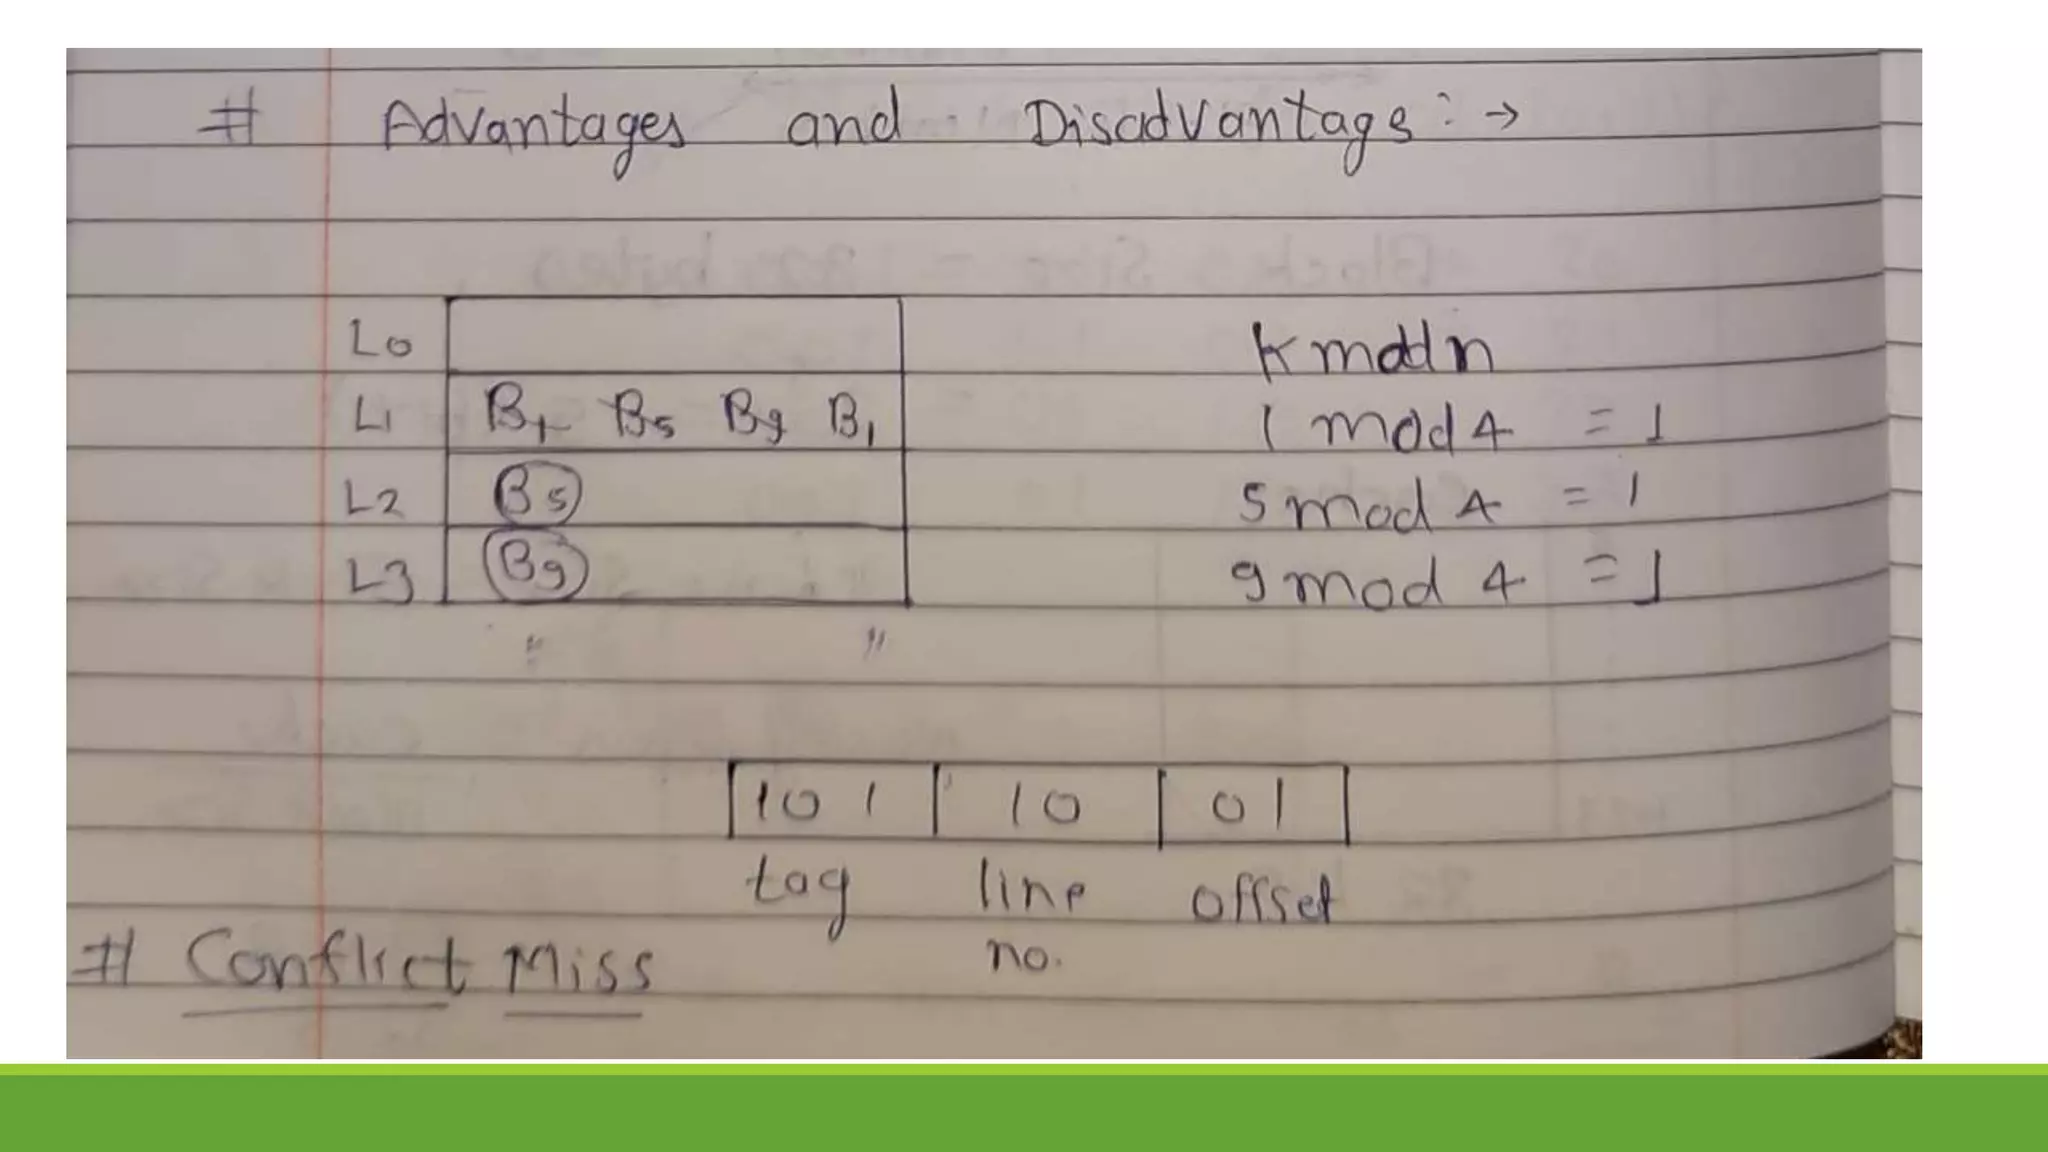 # Advantages and Disadvantage :→
L0 K mod n
L1 B1 B5 B9 B1 1 mod 4 = 1
L2 B5 5 mod 4 = 1
L3 B9 9 mod 4 = 1
" "
101 10 01
tag line offset
no.
# Conflict Miss